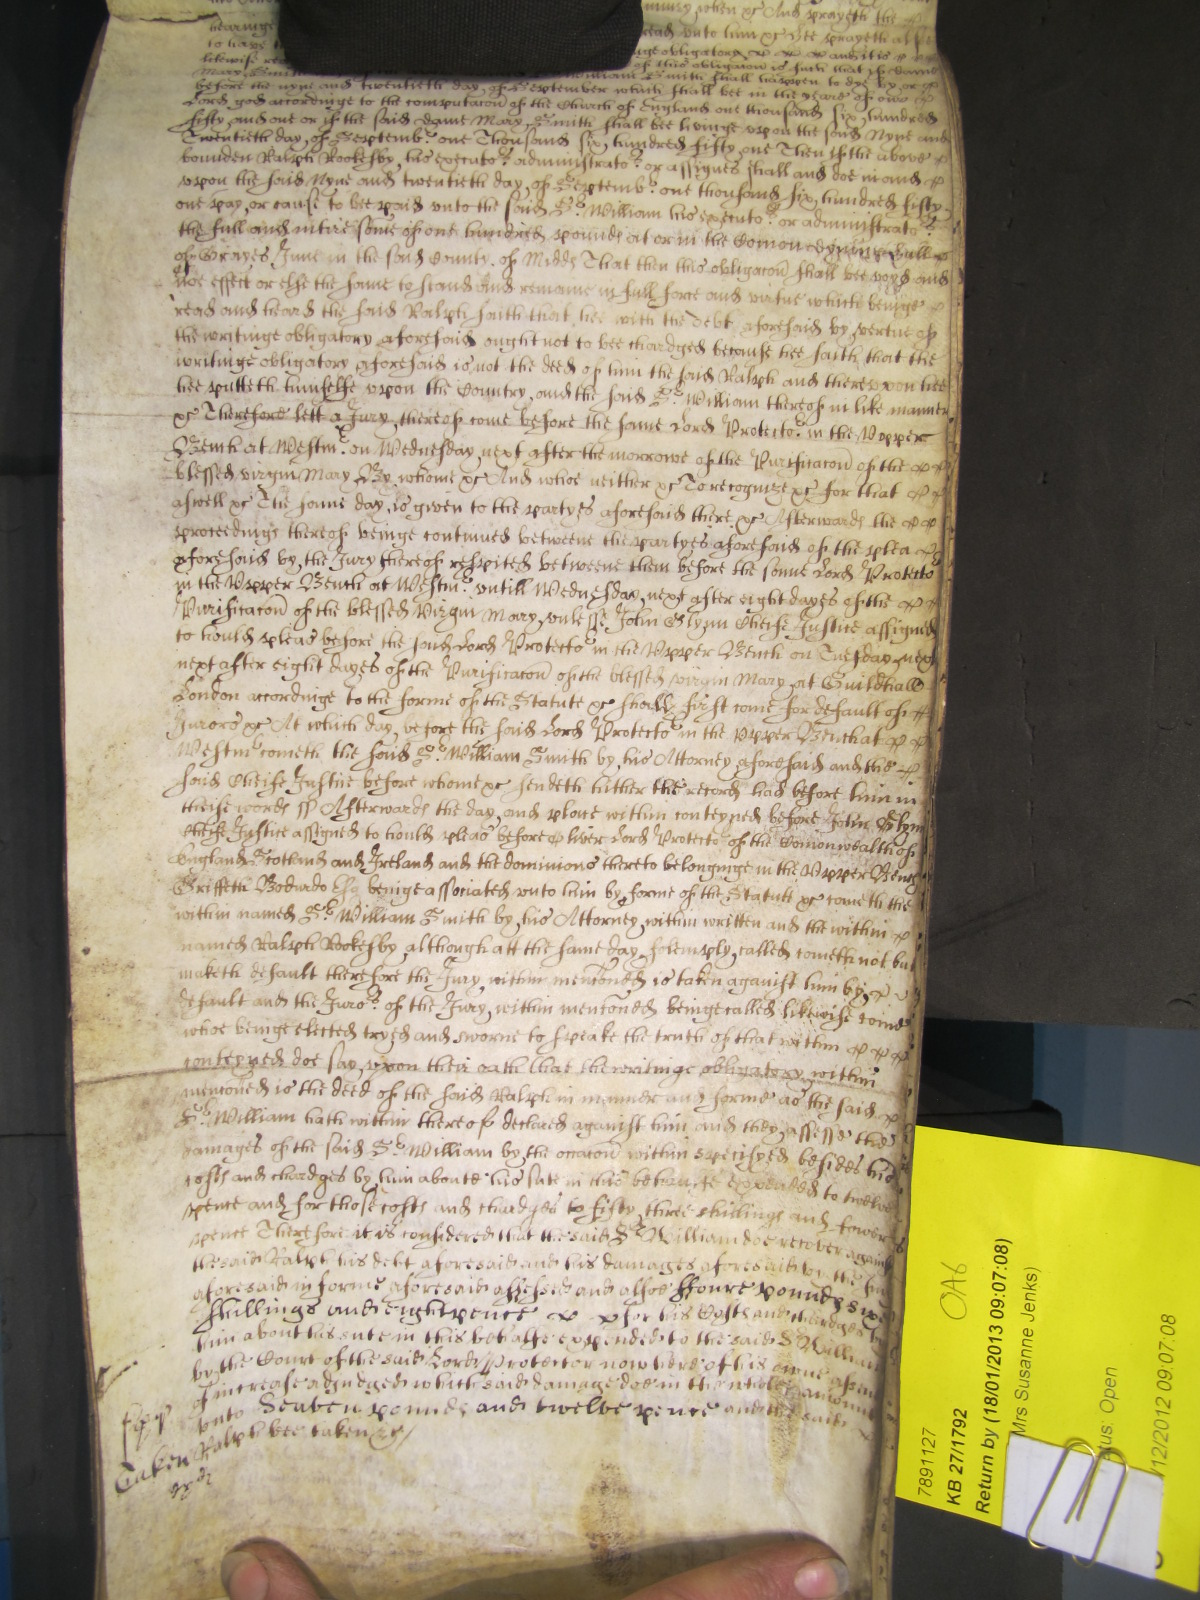 hearinge
to have
likewise
before the nyne and twentieth day of September which shall bee in the yeare of our
Lord god accordinge to the computacon of the Church of England one thousand six hundred
fifty and one or if the said dame Mary Smith shall bee livinge upon the said Nyne and
Twentieth day of Septembr one Thousand six hundred fifty one Then if the above
bounden Ralph Rookesby his executors administrators or assignes shall and doe in and
upon the said Nyne and twentieth day of Septembr one thousand six hundred fifty
one pay or cause to bee paid unto the said Sr William his executors or administrators
the full and intire some of one hundred pounds at or in the Comon dyninge Hall
of Grayes Inne in the said County of Midds That then this obligacon shall bee voyd and
noe effect or else the same to stand and remaine in full force and virtue which beinge
read and heard the said Ralph saith that hee with the debt aforesaid by vertue of
the writinge obligatory aforesaid ought not to bee chardged because hee saith that the
writinge obligatory aforesaid is not the deed of him the said Ralph and thereupon hee
hee putteth himselfe upon the Country, and the said Sr William thereof in like manner
&c Therefore lett a Jury thereof come before the same Lord Protector in the Upper
Bench at Westmr on Wednesday next after the morrowe of the Purificacon of the
blessed virgin Mary By whome &c And whoe neither &c To recognize &c for that
aswell &c The same day is given to the partyes aforesaid there &c Afterwards the
proceedings thereof beinge continued betweene the partyes aforesaid of the plea
aforesaid by the Jury thereof respited betweene them before the same Lord Protector
in the Upper Bench at Westmr untill Wednesday next after eight dayes of the
Purificacon of the blessed Virgin Mary, unlesse John Glynn Cheife Justice assigned
to hould pleas before the said Lord Protector in the Upper Bench on Tuesday next
next after eight dayes of the Purificacon of the blessed virgin Mary at Guildhall
London accordinge to the forme of the Statute &c shall first come for default of
Jurors &c At which day before the said Lord Protector in the Upper Bench at
Westmr cometh the said Sr William Smith by his Attorney aforesaid and the
said Cheife Justice before whome &c sendeth hither the record had before him in
theise words ss Afterwards the day and place within conteyned before John Glynn
Cheife Justice assigned to hould pleas before Oliver Lord Protector of the Comonwealth of
England Scotland and Ireland and the dominions thereto belonginge in the Upper Bench
Griffeth Bodurdo Esq beinge associated unto him by forme of the Statute &c cometh the
within named Sr William Smith by his Attorney within written and the within
named Ralph Rookesby although att the same day solemply called cometh not but
maketh default therefore the Jury within mentoned is taken against him by
default and the Jurors of the Jury within mentoned beinge called likewise come
whoe beinge elected tryed and sworne to speake the truth of that within
conteyned doe say upon their oath that the writinge obligatory within
mentoned is the deed of the said Ralph in manner and forme as the said
Sr William hath within thereof declared against him and they assesse the
damages of the said Sr William by the occacon within specifyed besides his
costs and chardges by him aboute his sute in this behalfe expended to twelve
pence and for those costs and chardges to fifty three shillings and fower
pence Therefore it is considered that the said Sr William doe recover against
the said Ralph his debt aforesaid and his damages aforesaid by the Jury
aforesaid in forme aforesaid assessed and alsoe ffoure pounds six
shillings and eight pence for his Costs and chardges by
him about his sute in this behalfe expended to the said Sr William
by the Court of the said Lord Protector now here of his owne assent
of increase adjudged which said damage doe in the whole amount
unto Seaven pounds and twelve pence and the said
Ralph bee taken &c
Taken
7891127
OA6
KB 27/1792
Return by (18/01/2013 09:07:08)
Mrs Susanne Jenks)
tus: Open
/12/2012 09:07:08